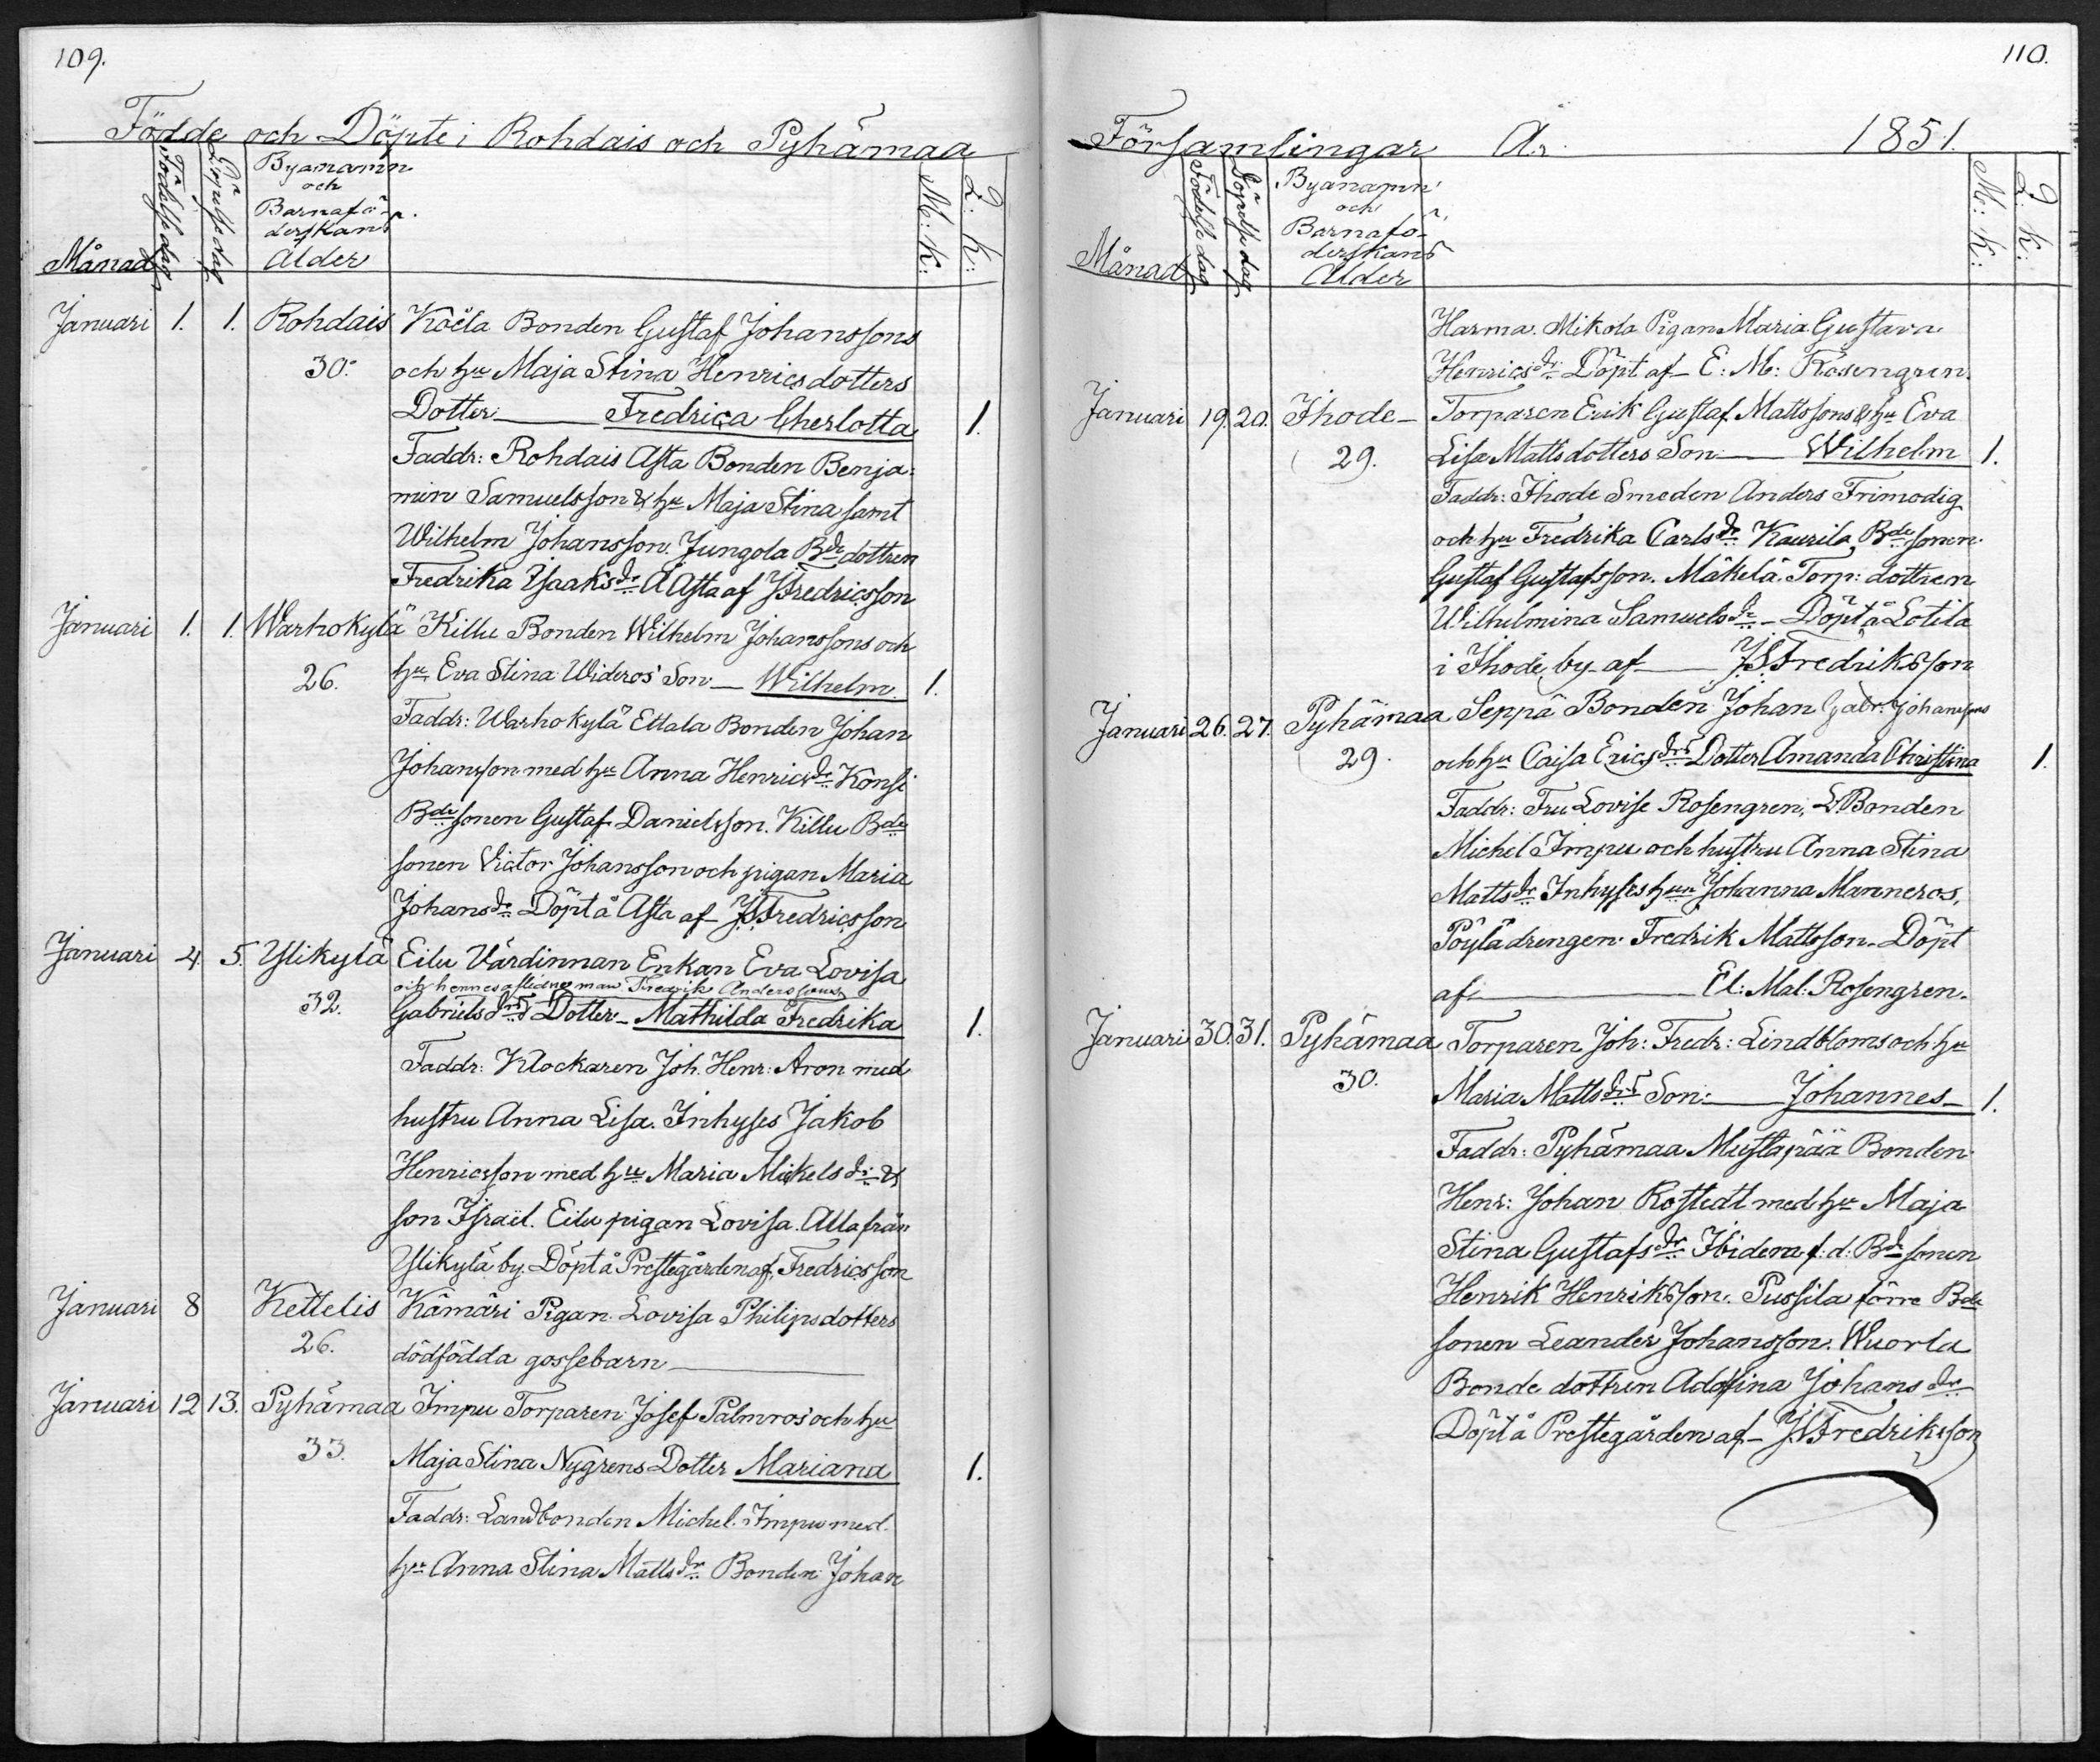 109.
Födde och Döpte i Rohdais och Pyhämaa
Månad
Födelse dag
Döpelse dag
Byanamn
och
Barnafö-
derskans
Ålder
M: K:
Q: K:
Januari 1. 1. Rohdais Köela Bonden Gustaf Johanssons
30. och hu Maja Stina Henricsdotters
Dotter Fredrica Cherlotta 1.
Faddr: Rohdais Asta Bonden Benja-
min Samuelsson & hu Maja Stina samt
Wilhelm Johansson. Jungola Bde dottren
Fredrika Isaaksdr Å Asta af JSFredricsson
Januari 1. 1. Warhokylä Killu Bonden Wilhelm Johanssons och
26. hu Eva Stina Wideros' Son Wilhelm. 1.
Faddr: Warhokylä Ettala Bonden Johan
Johansson med hu Anna Henricsdr Konsi
Bde sonen Gustaf Danielsson. Killu Bde
sonen Victor Johansson och pigan Maria
Johansdr Döpt å Asta af JSFredricsson
Januari 4. 5. Ylikylä Eilu Värdinnan Enkan Eva Lovisa
och hennes aflidne man Fredrik Anderssons
32. Gabrielsdrs Dotter Mathilda Fredrika 1.
Faddr: Klockaren Joh. Henr: Aron med
hustru Anna Lisa. Inhyses Jakob
Henricsson med hu Maria Mickelsdr &
son Israël. Eilu pigan Lovisa. Alla från
Ylikylä by. Döpt å Prestegården af Fredricsson
Januari 8 Kettelis Kämäri Pigan Lovisa Philipsdotters
26. dödfödda gossebarn
Januari 12 13. Pyhämaa Impu Torparen Josef Palmros' och hu
33. Maja Stina Nygrens Dotter Mariana 1.
Faddr: Landbonden Michel Impu med
hu Anna Stina Mattsdr Bonden Johan
110.
Församlingar År 1851.
Månad
Födelse dag
Döpelse dag
Byanamn
och
Barnafö-
derskans
Ålder
M: K:
Q: K:
Harma. Mikola Pigan Maria Gustava
Henricsdr Döpt af E: M: Rosengren.
Januari 19. 20. Ihode Torparen Erik Gustaf Mattssons & hu Eva
29. Lisa Mattsdotters Son Wilhelm 1.
Faddr: Ihode Smeden Anders Frimodig
och hu Fredrika Carlsdr Kaurila Bde sonen
Gustaf Gustafsson. Mäkelä Torp: dottren
Wilhelmina Samuelsdr Döpt å Lotila
i Ihode by af JSFredriksson
Januari 26. 27. Pyhämaa Seppä Bonden Johan Gabr: Johanssons
29. och hu Caisa Ericsdrs Dotter Amanda Christina 1.
Faddr: Fru Lovise Rosengren, LBonden
Michel Impu och hustru Anna Stina
Mattsdr Inhyses hun Johanna Manneros,
Pöylä drengen Fredrik Mattsson. Döpt
af El: Mal: Rosengren.
Januari 30. 31. Pyhämaa Torparen Joh: Fredr: Lindbloms och hu
30. Maria Mattsdrs Son Johannes 1.
Faddr: Pyhämaa Mustapää Bonden
Henr: Johan Rostedt med hu Maja
Stina Gustafsdr Ibidem f. d. Bde sonen
Henrik Henriksson. Pussila förre Bde
sonen Leander Johansson. Wuorla
Bonde dottren Adolfina Johansdr
Döpt å Prestegården af JSFredriksson